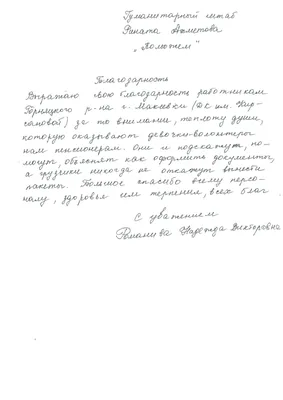 Гуманитарный штаб
Рината Ахметова
„Поможем"
Благодарность
Выражаю свою благодарность работникам
Горняцкого р-на г. Макеевки (ДК им. Кир-
сановой) за то внимание, теплоту души,
которую оказывают девочки-волонтеры
нам пенсионерам. Они и подскажут, по-
могут, объяснят как оформить документы,
а грузчики никогда не откажут вынести
пакеты. Большое спасибо всему персо-
налу, здоровья им терпения, всех благ
С уважением
Надежда Викторовна